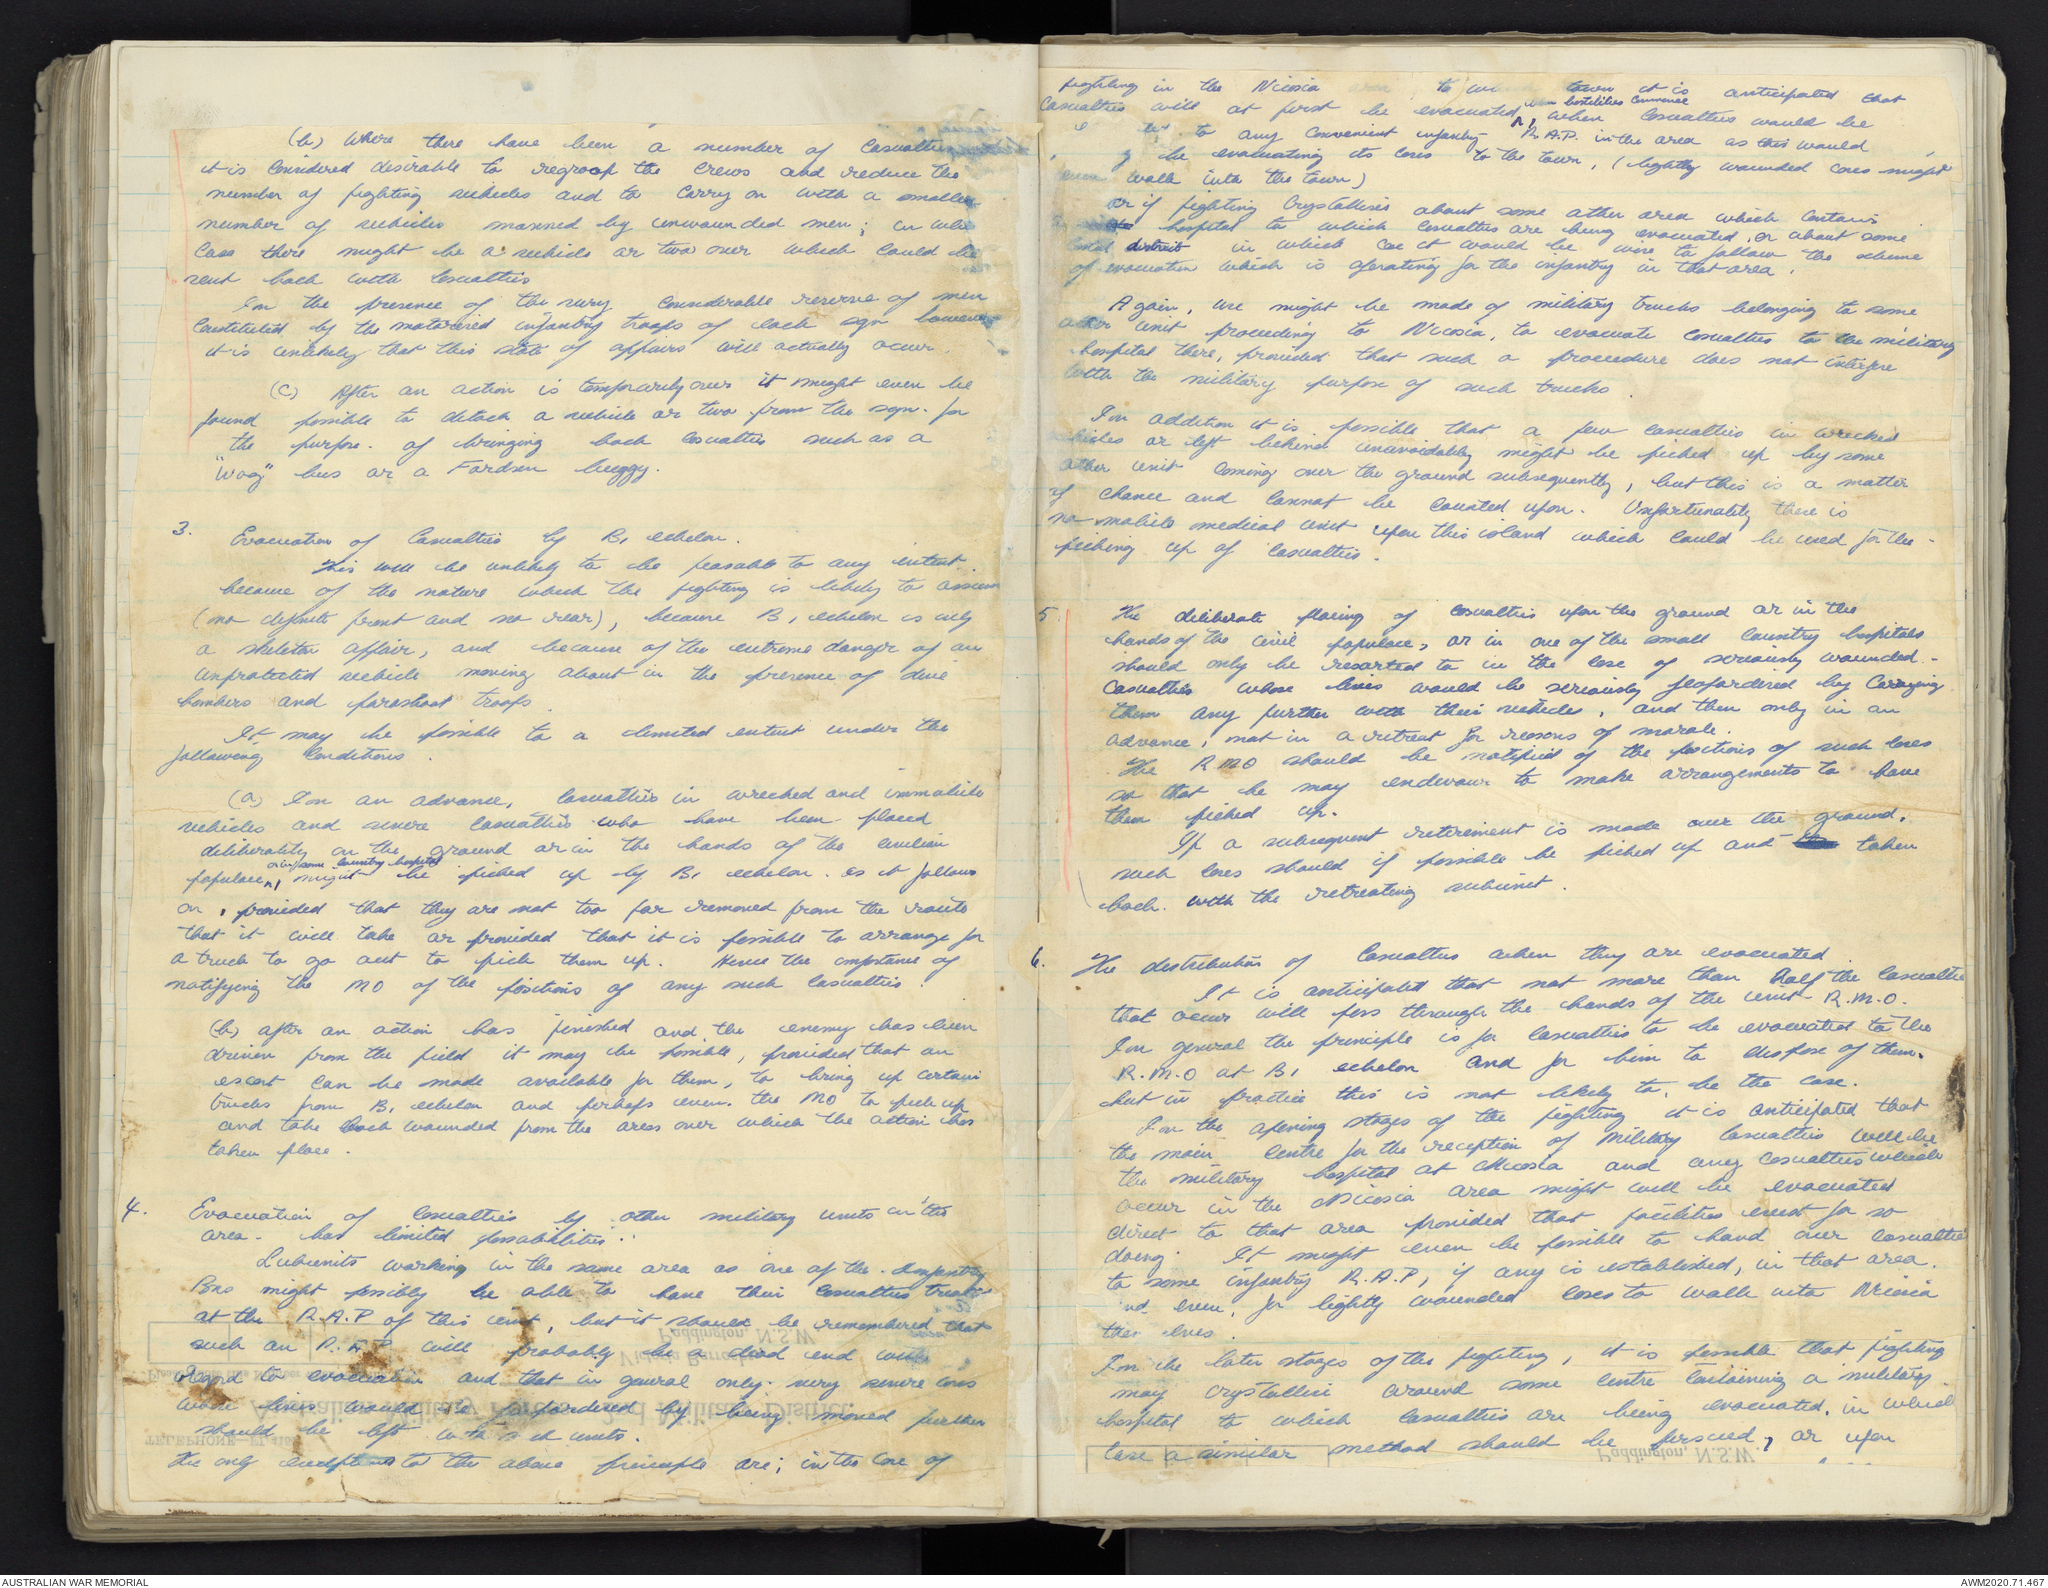 (b) Where there have been a number of Casualties
it is considered desirable to regroop the Crews and reduce the
number of fighting vehicles and to carry on with a smaller
number of vehicles manned by unwounded men; in
Case there might be a vehicle or two over which could be
sent back with Casualties
In the presence of the very considerable reserve of men
Constituted by the motorised infantry troops of each sqn however
it is unlikely that this state of affairs will actually occur.
(C) After an action is temporarily over it might even be
found possible to detach a vehicle or two from the sqn. for
the purpose of bringing back Casualties such as a
"Wog" bus or a Fordson buggy.
3. Evacuation of Casualties by B, echelon.
This will be unlikely to be feasable to any extent
because of the nature which the fighting is likely to assume
(no definite front and no rear), because B, echelon is only
a skeleton affair, and because of the extreme danger of an
unprotected vehicle moving about in the presence of dive
bombers and parashoot troops.
It may be possible to a limited extent under the
following Conditions.
(a) In an advance, Casualties in wrecked and immobile
vehicles and severe Casualties who have been placed
deliberately on the ground or in the hands of the civilian
or in some Country hospital
populace, might be picked up by B, echelon as it follows
on, provided that they are not too far removed from the route
that it will take or provided that it is possible to arrange for
a truck to go out to pick them up. Hence the importance of
notifying the MO of the positions of any such Casualties.
(b) after an action has finished and the enemy has been
driven from the field it may be possible, provided that an
escort can be made available for them, to bring up certain
trucks from B, echelon and perhaps even the MO to pick up
and take back wounded from the area over which the action has
taken place.
4. Evacuation of Casualties by other military units in the
area. has limited possabilities.
Subunits working in the same area as one of the Infantry
Bns might possibly be able to have their Casualties treated
at the R.A.P of this unit, but it should be remembered that
such an R.A.P will probably be a dead end with
regard to evacuation and that in general only very severe cases
whose lives would be jeopardered by being moved further
should be left with such units.
The only exceptions to the above principle are; in the Case of
Paddington, N.S.W.
Victoria Barracks
Australian Military Forces—2nd Military District.
TELEPHONE—FL
fighting in the Nicosia town it is anticipated that
when hostilities Commence
Casualties will at first be evacuated, when Casualties would be
to any convenient infantry R.A.P. in the area as this would
be evacuating its cases to the town, (lightly wounded cases might
even walk into the town)
or if fighting Crystallises about some other area which contains
hospital to which Casualties are being evacuated, or about some
district in which case it would be wise to follow the scheme
of evacuation which is operating for the infantry in that area.
Again, use might be made of military trucks belonging to some
other unit proceeding to Nicosia, to evacuate Casualties to the military
hospital there, provided that such a proceedure does not interfere
with the military purpose of such trucks.
In addition it is possible that a few casualties in wrecked
vehicles or left behind unavoidably might be picked up by some
other unit coming over the ground subsequently, but this is a matter
of chance and cannot be counted upon. Unfortunately there is
no mobile medical unit upon this island which could be used for the
picking up of casualties.
5. The deliberate placing of casualties upon the ground or in the
hands of the civil populace, or in one of the small Country hospitals
should only be resorted to in the case of seriously wounded
Casualties whose lives would be seriously jeopardered by Carrying
them any further with their vehicles, and then only in an
advance, not in a retreat for reasons of morale.
The RMO should be notified of the positions of such cases
so that he may endevour to make arrangements to have
them picked up.
If a subsequent retirement is made over the ground,
such cases should if possible be picked up and taken
back with the retreating subunit.
6. The distribution of Casualties when they are evacuated
It is anticipated that not more than half the Casualties
that occur will pass through the hands of the unit R.M.O.
In general the principle is for Casualties to be evacuated to the
R.M.O at B, echelon and for him to dispose of them.
but in practice this is not likely to be the case.
In the opening stages of the fighting it is anticipated that
the main centre for the reception of Military Casualties will be
the military hospital at Nicosia and any Casualties which
occur in the Nicosia area might well be evacuated
direct to that area provided that facilities exist for so
doing. It might even be possible to hand over casualties
to some infantry R.A.P, if any is established, in that area.
and even, for lightly wounded cases to walk into Nicosia
In the later stages of the fighting, it is possible that fighting
may crystallise around some centre containing a military
hospital to which Casualties are being evacuated, in which
Case a similar method should be persued, or upon
Paddington, N.S.W.
AUSTRALIAN WAR MEMORIAL
AWM2020.71.467